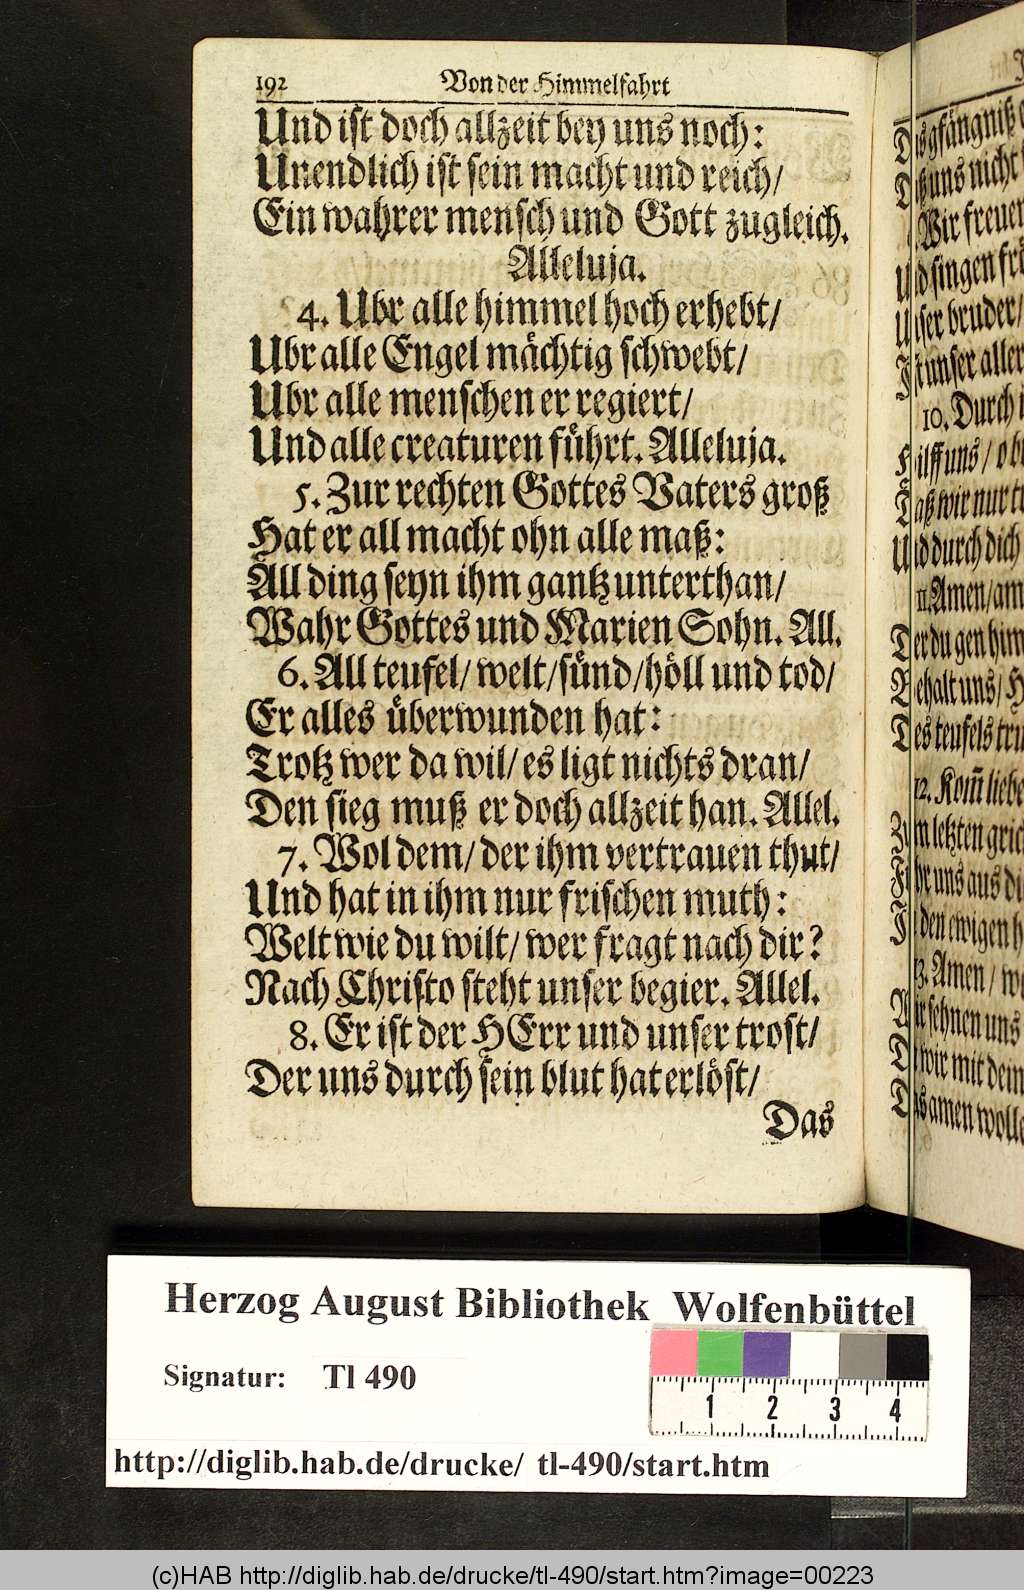 192 Von der Himmelfahrt
Und ist doch allzeit bey uns noch:
Unendlich ist sein macht und reich/
Ein wahrer mensch und Gott zugleich.
Alleluja.
4. Ubr alle himmel hoch erhebt/
Ubr alle Engel mächtig schwebt/
Ubr alle menschen er regiert/
Und alle creaturen führt. Alleluja.
5. Zur rechten Gottes Vaters groß
Hat er all macht ohn alle maß:
All ding seyn ihm gantz unterthan/
Wahr Gottes und Marien Sohn. All.
6. All teufel/ welt/ sünd/ höll und tod/
Er alles überwunden hat:
Trotz wer da wil/ es ligt nichts dran/
Den sieg muß er doch allzeit han. Allel.
7. Wol dem/ der ihm vertrauen thut/
Und hat in ihm nur frischen muth:
Welt wie du wilt/ wer fragt nach dir?
Nach Christo steht unser begier. Allel.
8. Er ist der HErr und unser trost/
Der uns durch sein blut hat erlöst/
Das
gfängniß
uns nicht
Wir freuen
singen
bruder/
unser aller
10. Durch
uns/
wir nur
durch dich
11. Amen/
du gen
uns/
teufels
12. Kom̃
letzten
uns aus
den ewigen
13. Amen/
sehnen uns
wir mit
amen
Herzog August Bibliothek Wolfenbüttel
Signatur: Tl 490
1 2 3 4
http://diglib.hab.de/drucke/ tl-490/start.htm
(c)HAB http://diglib.hab.de/drucke/tl-490/start.htm?image=00223